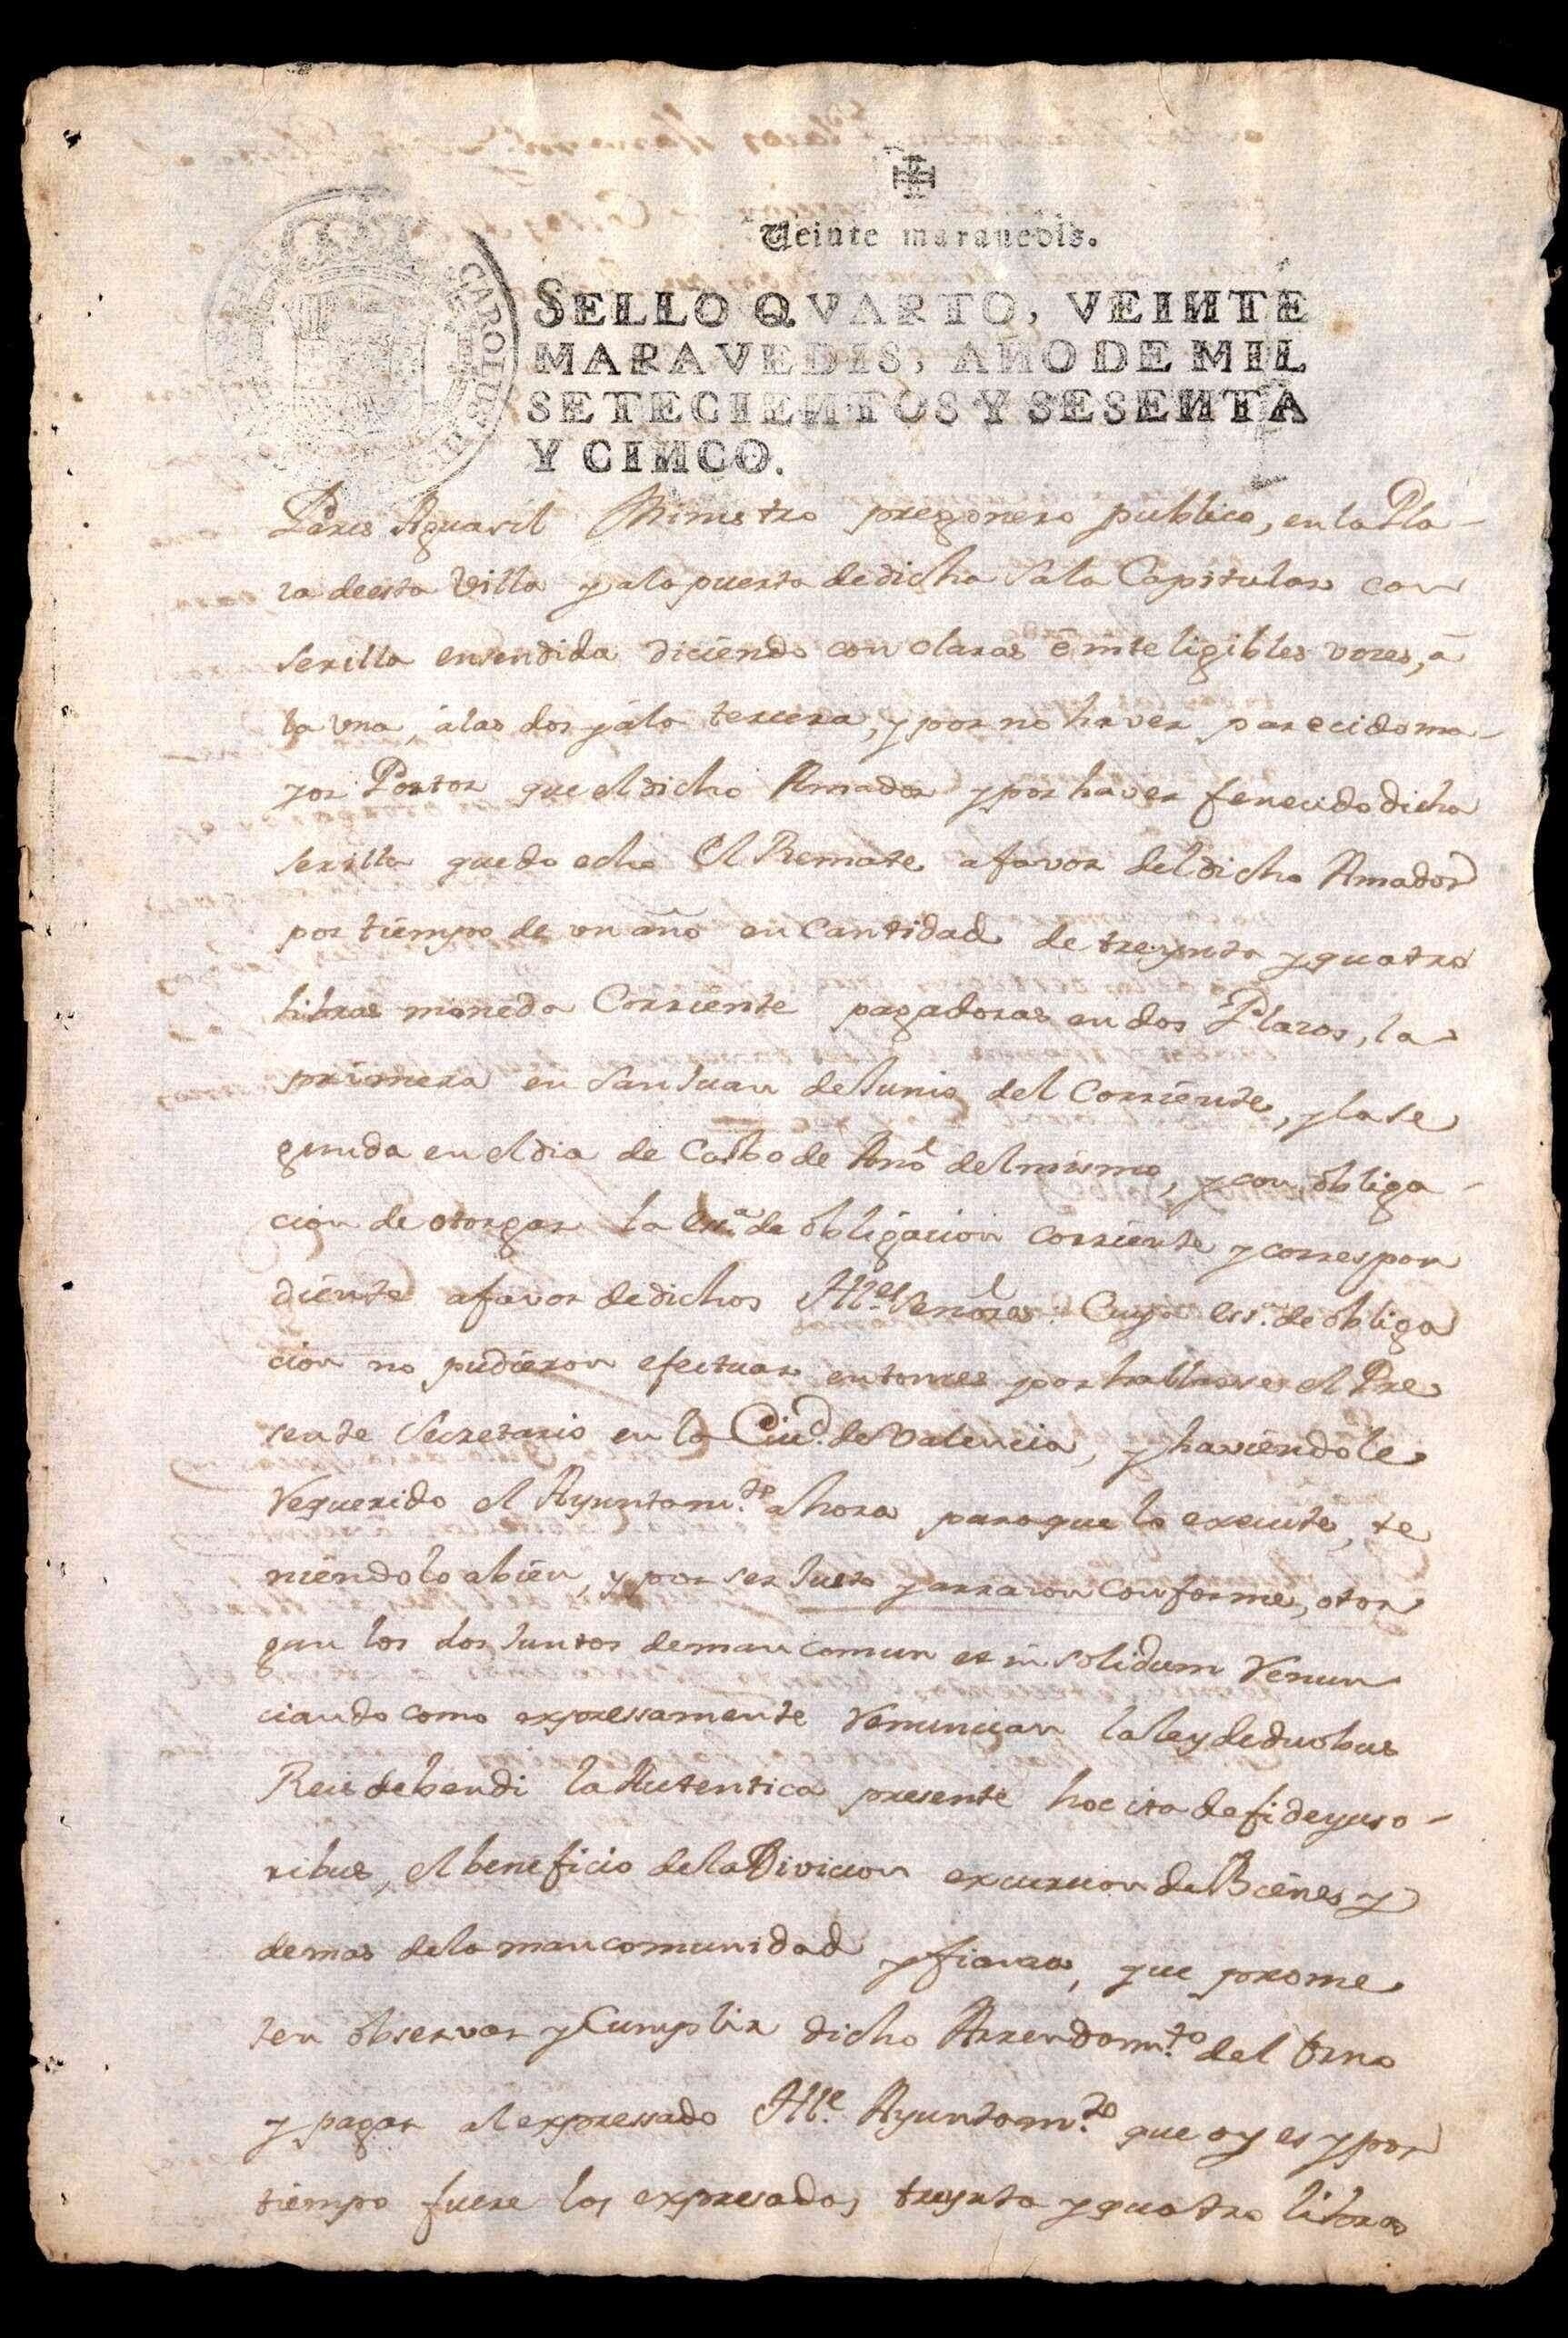 Veinte maravedis.
SELLO QVARTO, VEINTE
MARAVEDIS, AÑO DE MIL
SETECIENTOS Y SESENTA
Y CINCO.
CAROLUS
Peris Aguasil Ministro pregonero publico, en la Pla-
za de esta Villa y a la puerta de dicha Sala Capitular con
serilla ensendida diciendo con claras é inteligibles vozes, á
la una, á las dos y á la tercera, y por no haver parecido ma-
yor Postor que el dicho Amador y por haver fenecido dicha
serilla quedo echo el Remate a favor del dicho Amador
por tiempo de un año en Cantidad de treynta y quatro
libras moneda Corriente pagadoras en dos Plazos, la
primera en San Juan de Junio del Corriente, y la se
gunda en el dia de Cabo de Año del mismo, y con obliga-
cion de otorgar la Essa. de obligacion corriente y correspon
diente a favor de dichos Illes. Señores: Cuya ess.a de obliga
cion no pudieron efectuar entonces por hallarse el Pre
sente Secretario en la Ciud. de Valencia, y haviendole
requerido el Ayuntam.to ahora para que lo execute, te
niendolo abien, y por ser Justo y arrazon conforme, otor
gan los dos Juntos de man comun et in solidum renun
ciando como expressamente renuncian la ley de duobus
Reis debendi la Autentica presente hoc ita de fideyuso-
ribus, el beneficio de la Divicion excurcion de Bienes y
demas de la mancomunidad y fianza, que prome
ten observar y Cumplir dicho Arrendam.to del forno
y pagar al expressado Ille. Ayuntam.to que oy es y por
tiempo fuere las expresadas treynta y quatro libras